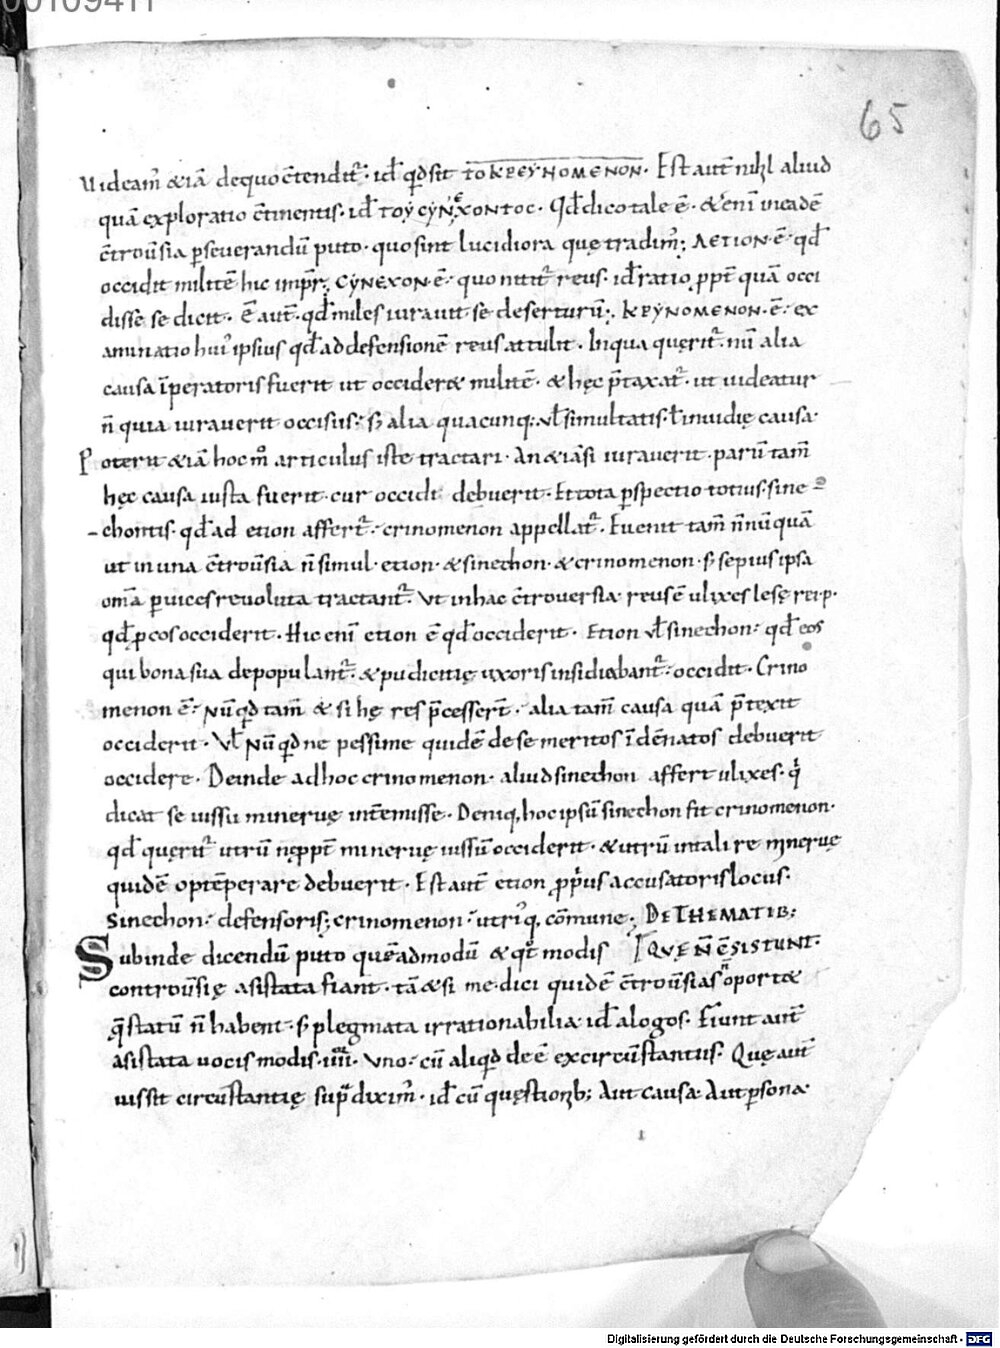 00109411
65
Uideam̃ &iã dequoc̃tenditr̃· id̃ qd̃ sit τοΚΡΕΥΝΟΜΕΝΟΝ· Est aut̃ nihl aliud
quã exploratio c̃tinentis· id̃ ΤΟΥ CΥΝΕΧΟΝΤΟC· Qd̃ dico tale ẽ· & enĩ in eadẽ
c̃trou̅sia p̱seuerandũ puto· quo sint lucidiora quę tradim̃; ΑΕΤΙΟΝ· ẽ· qd̃
occidit militẽ hic imp̃r; CΥΝΕΧΟΝ· ẽ· quo nitit̃ reus· id̃ ratio ppt̃ quã occi
disse se dicit· Ẽ aut̃· qd̃ miles iurauit se deserturũ; ΚΡΥΝΟΜΕΝΟΝ· ẽ· ex
aminatio hui' ipsius qd̃ ad defensionẽ reus attulit· In qua quęrit̃ nũ alia
causa ĩperatoris fuerit ut occider& militẽ· & hęc p̃taxat̃· ut uideatur
ñ quia iurauerit occisus· s; alia quacunq; ut̃ simultatis· ł inuidię causa·
Poterit &iã hoc m̊ articulus iste tractari· An &iã si iurauerit· parũ tam̃
hęc causa iusta fuerit· cur occidi debuerit· Et tota p̱spectio totius· sine
- chontis· qd̃ ad etion affert̃· crinomenon appellat̃· Euenit tam̃ nñũquã
ut in una c̃trou̅sia ñ simul· etion· & sinechon· & crinomenon· s; sepius ipsa
om̃a p̱ uices reuoluta tractant̃· Ut in hac c̃trouersia· reus ẽ ulixes lesę rei p·
qd̃ p̱cos occiderit· Hic enĩ etion ẽ qd̃ occiderit· Etion ł sinechon· qd̃ eos
qui bona sua depopulant̃· & pudicitię uxoris insidiabant̃· occidit· Crino
menon ẽ· Nũ qd̃ tam̃ & si hę res p̃cessert̃· alia tam̃ causa quã p̃texit
occiderit· Ul̃ Nũ qd̃ ne pessime quidẽ de se meritos ĩdẽnatos debuerit
occidere· Deinde ad hoc crinomenon· aliud sinechon affert ulixes· q'
dicat se iussu mineruę int̃emisse· Deniq, hoc ipsũ sinechon fit crinomenon·
qd̃ quęrit̃ utrũ nę ppt̃ mineruę iussũ occiderit· & utrũ in tali re mineruę
quidẽ optẽperare debuerit· Est aut̃ etion pp̃rius accusatoris locus·
Sinechon· defensoris; crinomenon· utri'q, cõmune; DE THEMATIB;
Subinde dicendũ puto quẽadmodũ & qt̃ modis QVĘ ÑCẼSISTUNT·
controu̅się asistata fiant· tã&si me·dici quidẽ c̃trou̅sias ñ oport&
q̃ statũ ñ habent· s; plegmata irrationabilia id̃ alogos· Fiunt aut̃
asistata uocis modis· iiii· Uno· cũ aliqd̃ deẽ ex circũstantiis· Quę aut̃
uissit circũstantię sup̃ dixim̃· id̃ cũ quęstionib; Aut causa· Aut p̱sona·
Digitalisierung gefördert durch die Deutsche Forschungsgemeinschaft - DFG